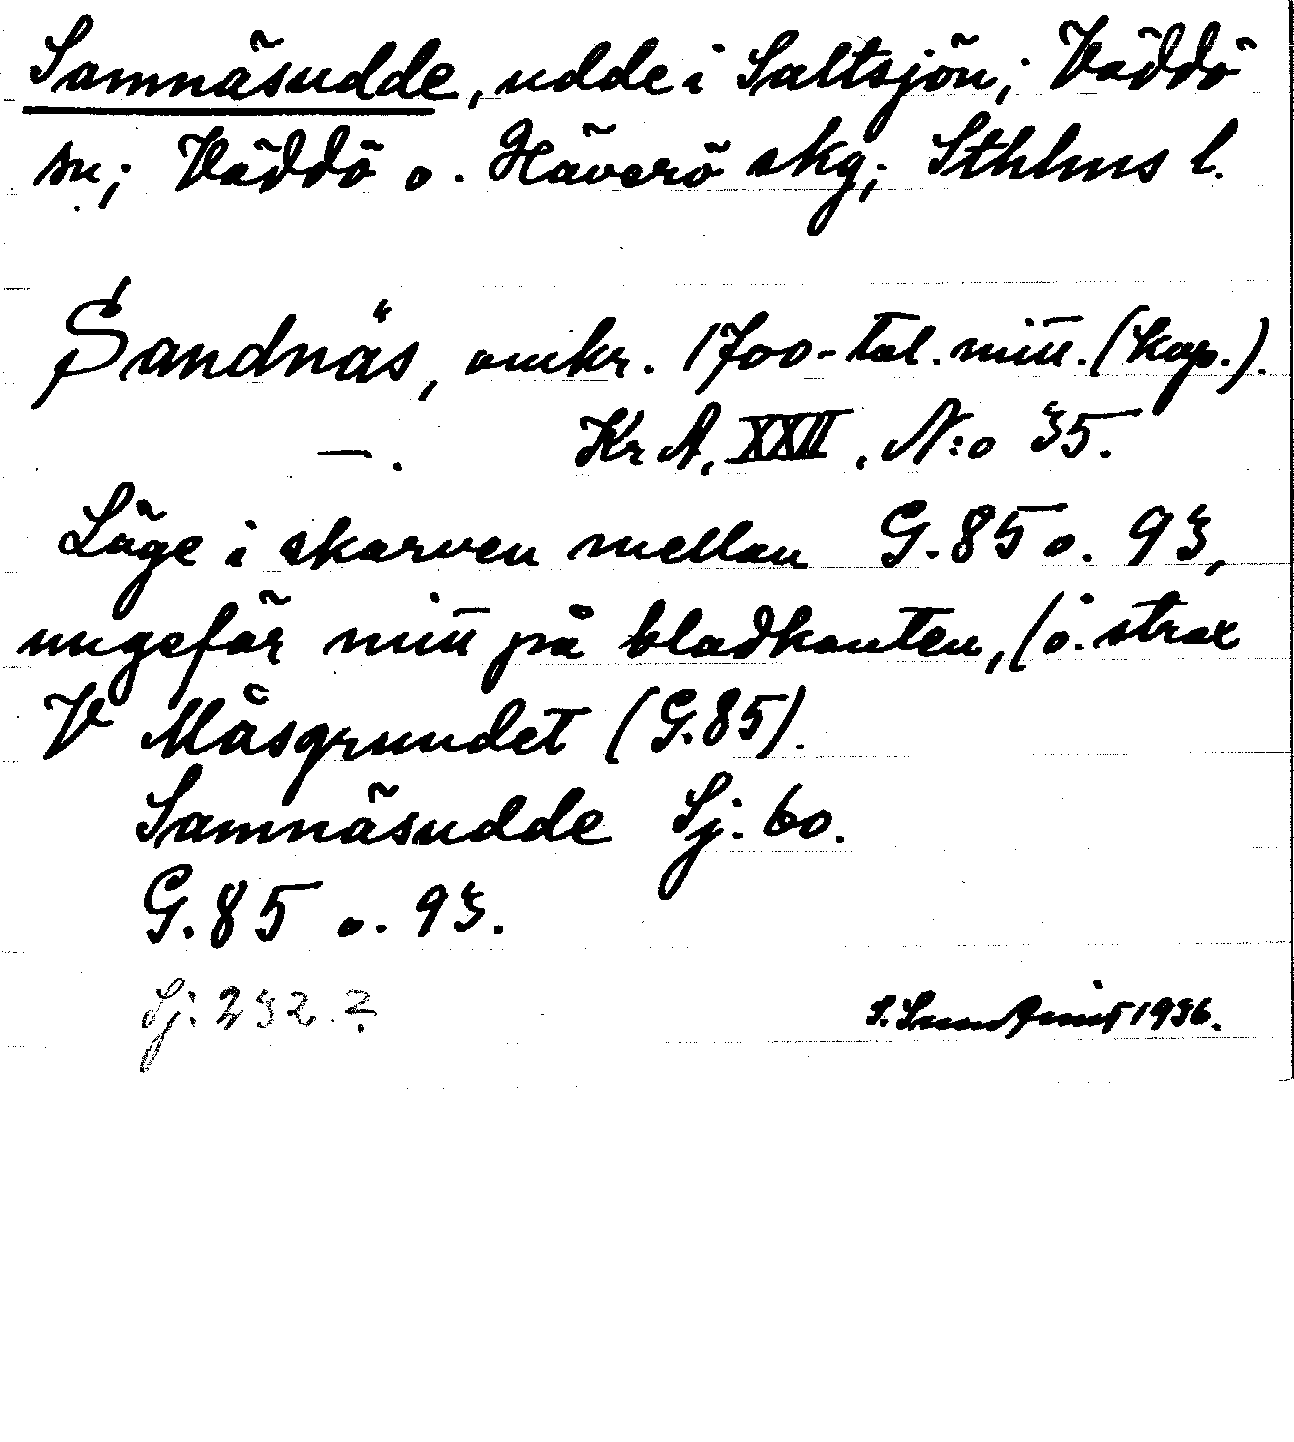 Samnäsudde, udde i Saltsjön; Väddö
sn; Väddö o. Häverö skg; Sthlms l.
Sandnäs, omkr. 1700-tal. mitt. (kop.).
—. Kr A, XXII, N:o 35.
Läge i skarven mellan G. 85 o. 93,
ungefär mitt på bladkanten, (ö. strax
V Måsgrundet (G. 85).
Samnäsudde Sj. 60.
G. 85 o. 93.
Sj. 232. ?
1936.